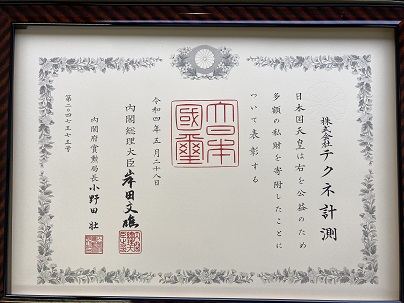 株式会社テクネ計測
日本国天皇は右を公益のため
多額の私財を寄附したことに
ついて表彰する
大日本
國璽
令和四年五月二十八日
内閣総理大臣 岸田文雄
内閣府賞勲局長 小野田 壮
第二〇四七五十五号